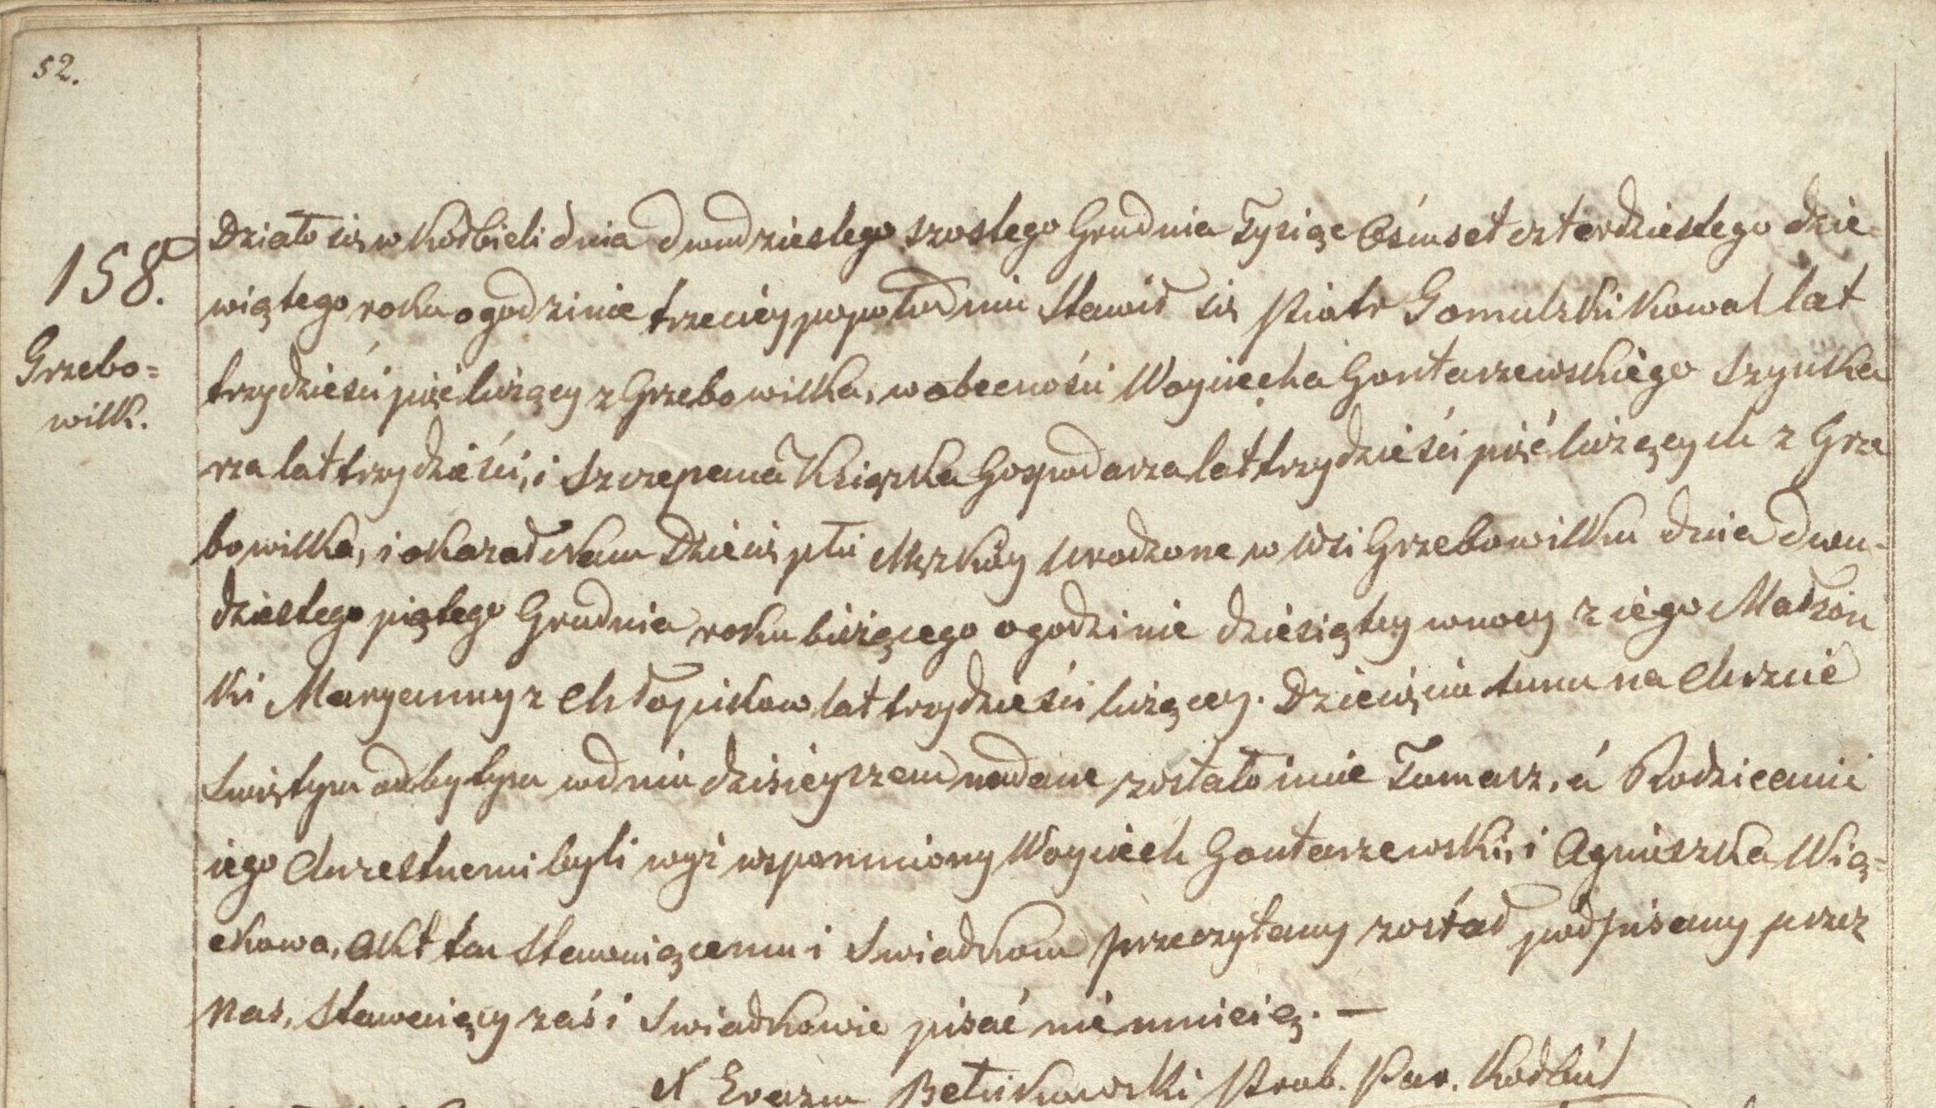 52.
158.
Grzebo=
wilk.
Działo się w Kołbieli dnia dwudziestego szostego Grudnia Tysiąc Osmset czterdziestego dzie-
wiątego roku o godzinie trzeciey popołudniu Stawił się Piotr Gomulski Kowal lat
trzydzieści pięć liczący z Grzebowilka, w obecności Woyciecha Gontarzewskiego Szynka
rza lat trzydzieści, i Szczepana Książka Gospodarza lat trzydzieści pięć liczących z Grze
bowilka, i okazał nam Dziecię płci Męzkiey urodzone w Wsi Grzebowilku dnia dwu-
dziestego piątego Grudnia roku bieżącego o godzinie dziesiątey w nocy z iego Małżon
ki Maryanny z Chłopików lat trzydzieści liczącey. Dziecięciu temu na Chrzcie
Swiętym odbytym w dniu dzisieyszem nadane zostało imie Tomasz, a Rodzicami
iego Chrzestnemi byli wyż wspomniony Woyciech Gontarzewski, i Agnieszka Wią=
ckowa, Akt ten Stawaiącemu i Swiadkom przeczytany został podpisany przez
Nas, Stawaiący zaś i Swiadkowie pisać nie umieią. —
X Erazm Bętkowski Prob. Par. Kołbiel